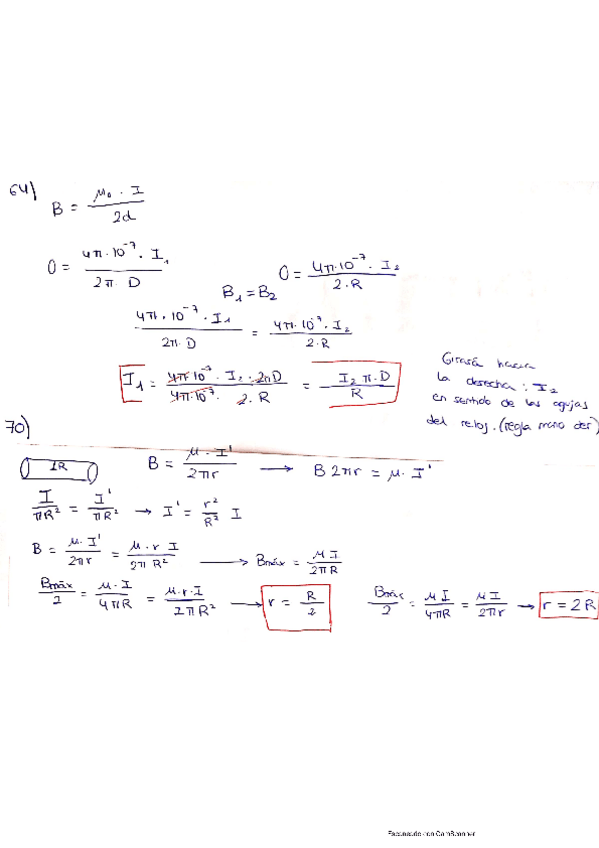 64)
B = μ₀ · I / 2d
0 = 4π·10⁻⁷ · I₁ / 2π · D
0 = 4π·10⁻⁷ · I₂ / 2·R
B₁ = B₂
4π · 10⁻⁷ · I₁ / 2π·D = 4π·10⁻⁷ · I₂ / 2·R
I₁ = 4π·10⁻⁷ · I₂ · 2πD / 4π·10⁻⁷ · 2·R = I₂ π·D / R
Girará hacia
la derecha : I₂
en sentido de las agujas
del reloj. (regla mano der)
70)
IR
B = μ · I' / 2πr → B 2πr = μ · I'
I / πR² = I' / πR² → I' = r² / R² I
B = μ·I' / 2πr = μ·r I / 2π R² → Bmáx = μ I / 2πR
Bmáx / 2 = μ·I / 4πR = μ·r·I / 2πR² → r = R / 2
Bmáx / 2 = μ I / 4πR = μI / 2πr → r = 2R
Escaneado con CamScanner